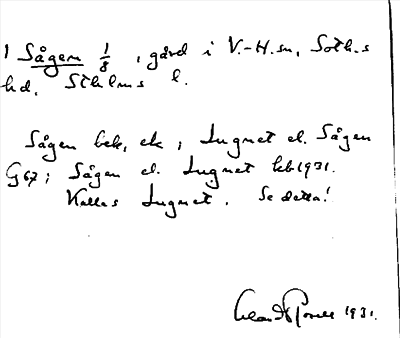 1 Sågen 1/8, gård i V.-H.sn, Soth.s
hd, Sthlms l.
Sågen bek, ek; Lugnet el. Sågen
G67; Sågen el. Lugnet kb1931.
Kallas Lugnet. Se detta!
1931.